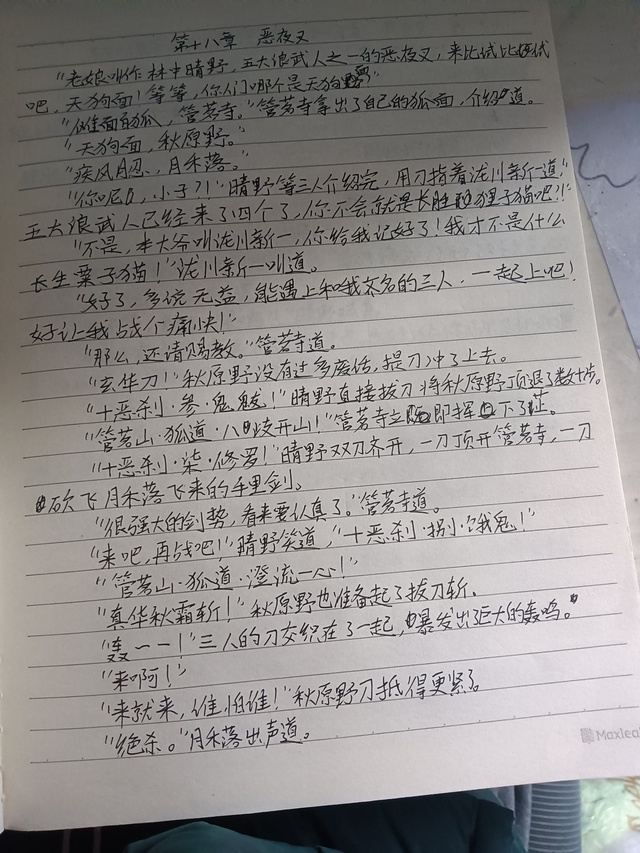 第十八章 恶夜叉
"老娘叫作林中晴野,五大浪武人之一的恶夜叉,来比试比试
吧,天狗面!等等,你们哪个是天狗
"傩面有狐,管茗寺。"管茗寺拿出了自己的狐面,介绍道。
"天狗面,秋原野。"
"疾风月忍,月禾落。"
"你呢,小子?!"晴野等三人介绍完,用刀指着泷川新一道,"
五大浪武人已经来了四个了,你不会就是长胜狸子猫吧?!"
"不是,本大爷叫泷川新一,你给我记好了!我才不是什么
长生栗子猫!"泷川新一叫道。
"好了,多说无益,能遇上和我齐名的三人,一起上吧!
好让我战个痛快!"
"那么,还请赐教。"管茗寺道。
"玄华刀!"秋原野没有过多废话,提刀冲了上去。
"十恶刹·参·鬼魃!"晴野直接拔刀将秋原野顶退了数十步。
"管茗山·狐道·八岐开山!"管茗寺立即挥下了
"十恶刹·柒·修罗!"晴野双刀齐开,一刀顶开管茗寺,一刀
砍飞月禾落飞来的手里剑。
"很强大的剑势,看来要认真了。"管茗寺道。
"来吧,再战吧!"晴野笑道,"十恶刹·捌·饿鬼!"
"管茗山·狐道·澄流一心!"
"真华秋霜斩!"秋原野也准备起了拔刀斩。
"轰——!"三人的刀交织在了一起,爆发出巨大的轰鸣。"
"来啊!"
"来就来,谁怕谁!"秋原野刀抵得更紧了。
"绝杀。"月禾落出声道。
Maxlea